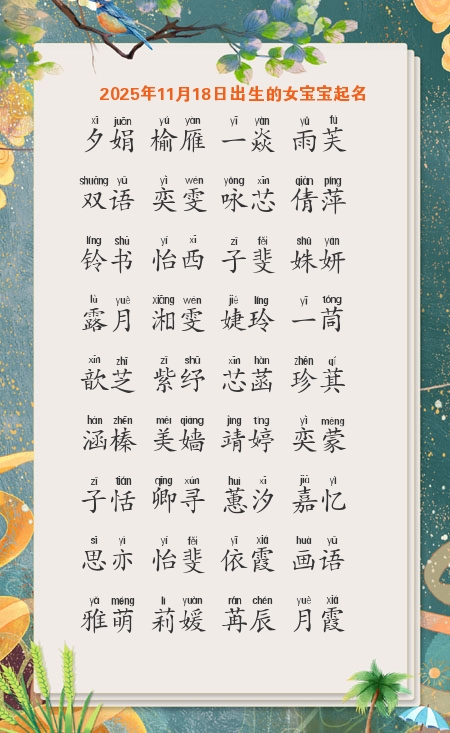 2025年11月18日出生的女宝宝起名
xī juān yú yàn yī yàn yǔ fú
夕娟 榆雁 一焱 雨芙
shuāng yǔ yì wén yǒng xīn qiàn píng
双语 奕雯 咏芯 倩萍
líng shū yí xī zǐ fěi shū yán
铃书 怡西 子斐 姝妍
lù yuè xiāng wén jié líng yī tóng
露月 湘雯 婕玲 一茼
xīn zhī zǐ shū xīn hàn zhēn qí
歆芝 紫纾 芯菡 珍萁
hán zhēn měi qiáng jìng tíng yì méng
涵榛 美嫱 靖婷 奕蒙
zǐ tián qīng xún huì xī jiā yì
子恬 卿寻 蕙汐 嘉忆
sī yì yí fěi yī xiá huà yǔ
思亦 怡斐 依霞 画语
yǎ méng lì yuàn rǎn chén yuè xiá
雅萌 莉媛 苒辰 月霞